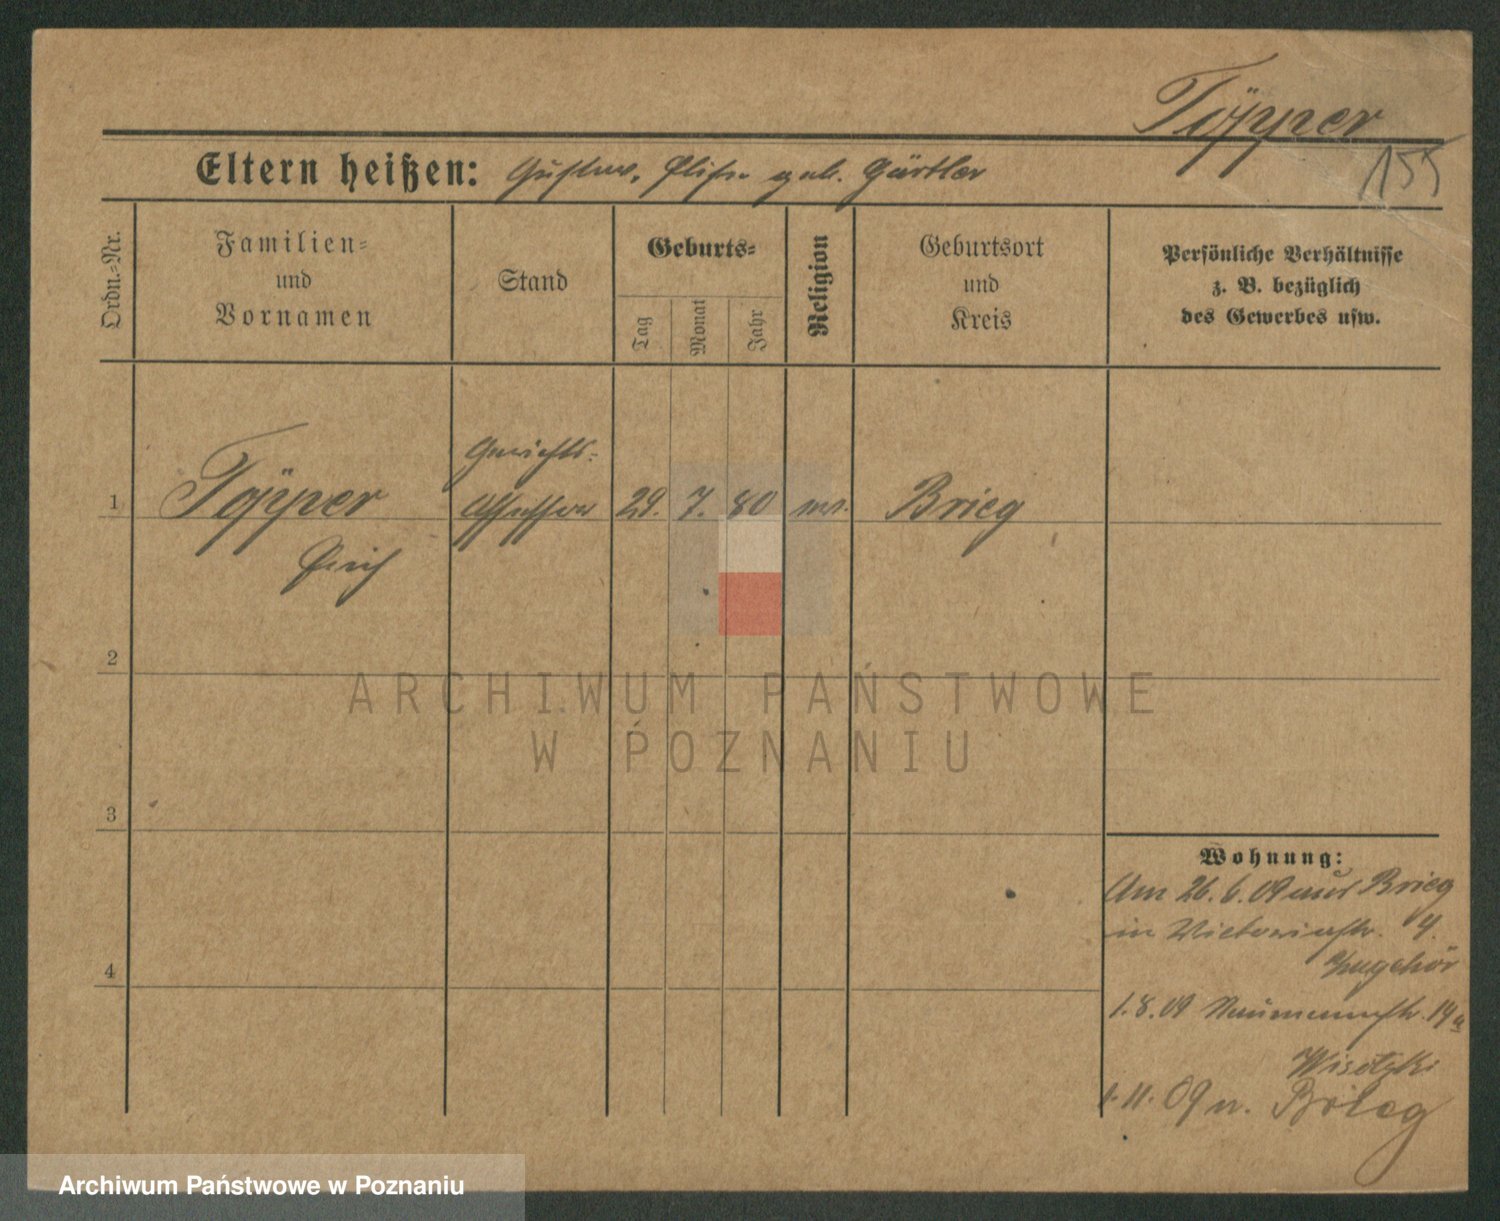 Töpper
155
Eltern heißen: Gustav, Elise geb. Gärtler
Ordn.-Nr.
Familien-
und
Vornamen
Stand
Geburts-
Tag
Monat
Jahr
Religion
Geburtsort
und
Kreis
Persönliche Verhältnisse
z. B. bezüglich
des Gewerbes usw.
Gerichts-
1 Töpper Assessor 29. 7. 80 ev. Brieg
Erich
2
ARCHIWUM PAŃSTWOWE
W POZNANIU
3
Wohnung:
Am 26.6.09 aus Brieg
in Victoriastr. 4.
4
1.8.09 Naumannstr. 14a
Wisotzki
1.11.09 n. Brieg
Archiwum Państwowe w Poznaniu